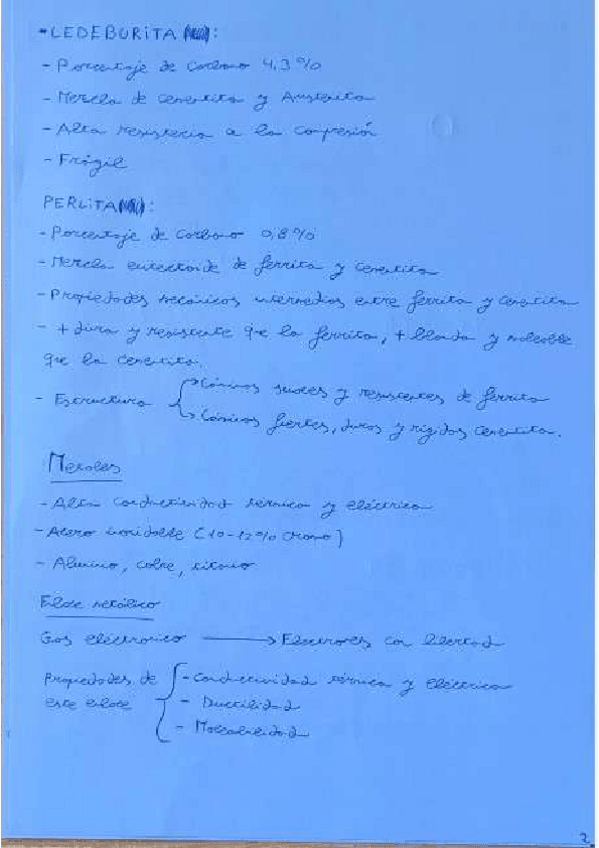 • LEDEBURITA :
- Porcentaje de carbono 4,3%
- Mezcla de cementita y Austenita
- Alta resistencia a la compresión
- Frágil
PERLITA :
- Porcentaje de carbono 0,8%
- Mezcla eutectoide de ferrita y cementita
- Propiedades mecánicas intermedias entre ferrita y cementita
- + dura y resistente q-e la ferrita, + blanda y maleable
q-e la cementita.
- Estructura
Láminas suaves y resistentes de ferrita
Láminas fuertes, duras y rígidas cementita.
Metales
- Alta conductividad térmica y eléctrica
- Acero inoxidable (10-12% cromo)
- Aluminio, cobre, titanio
Enlace metálico
Gas electrónico → Electrones con libertad
Propiedades de
este enlace
- Conductividad térmica y eléctrica
- Ductilidad
- Maleabilidad
2